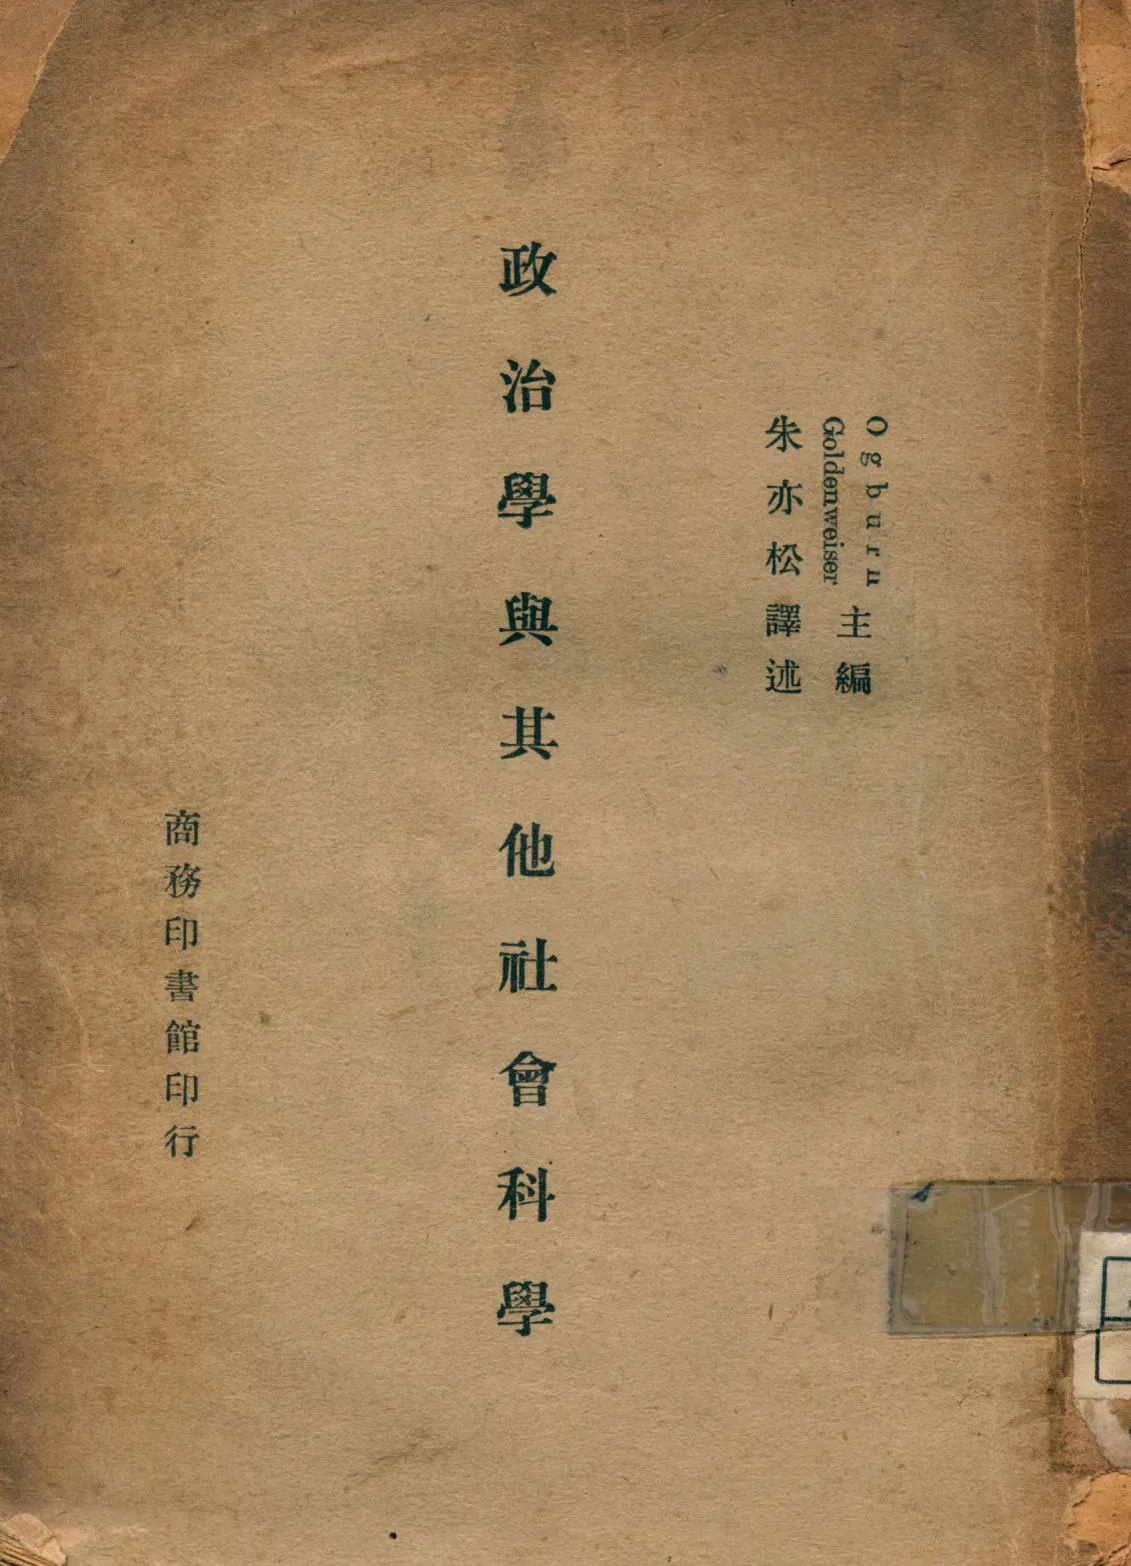 Ogburn
Goldenweiser
主編
朱亦松譯述
政治學與其他社會科學
商務印書館印行